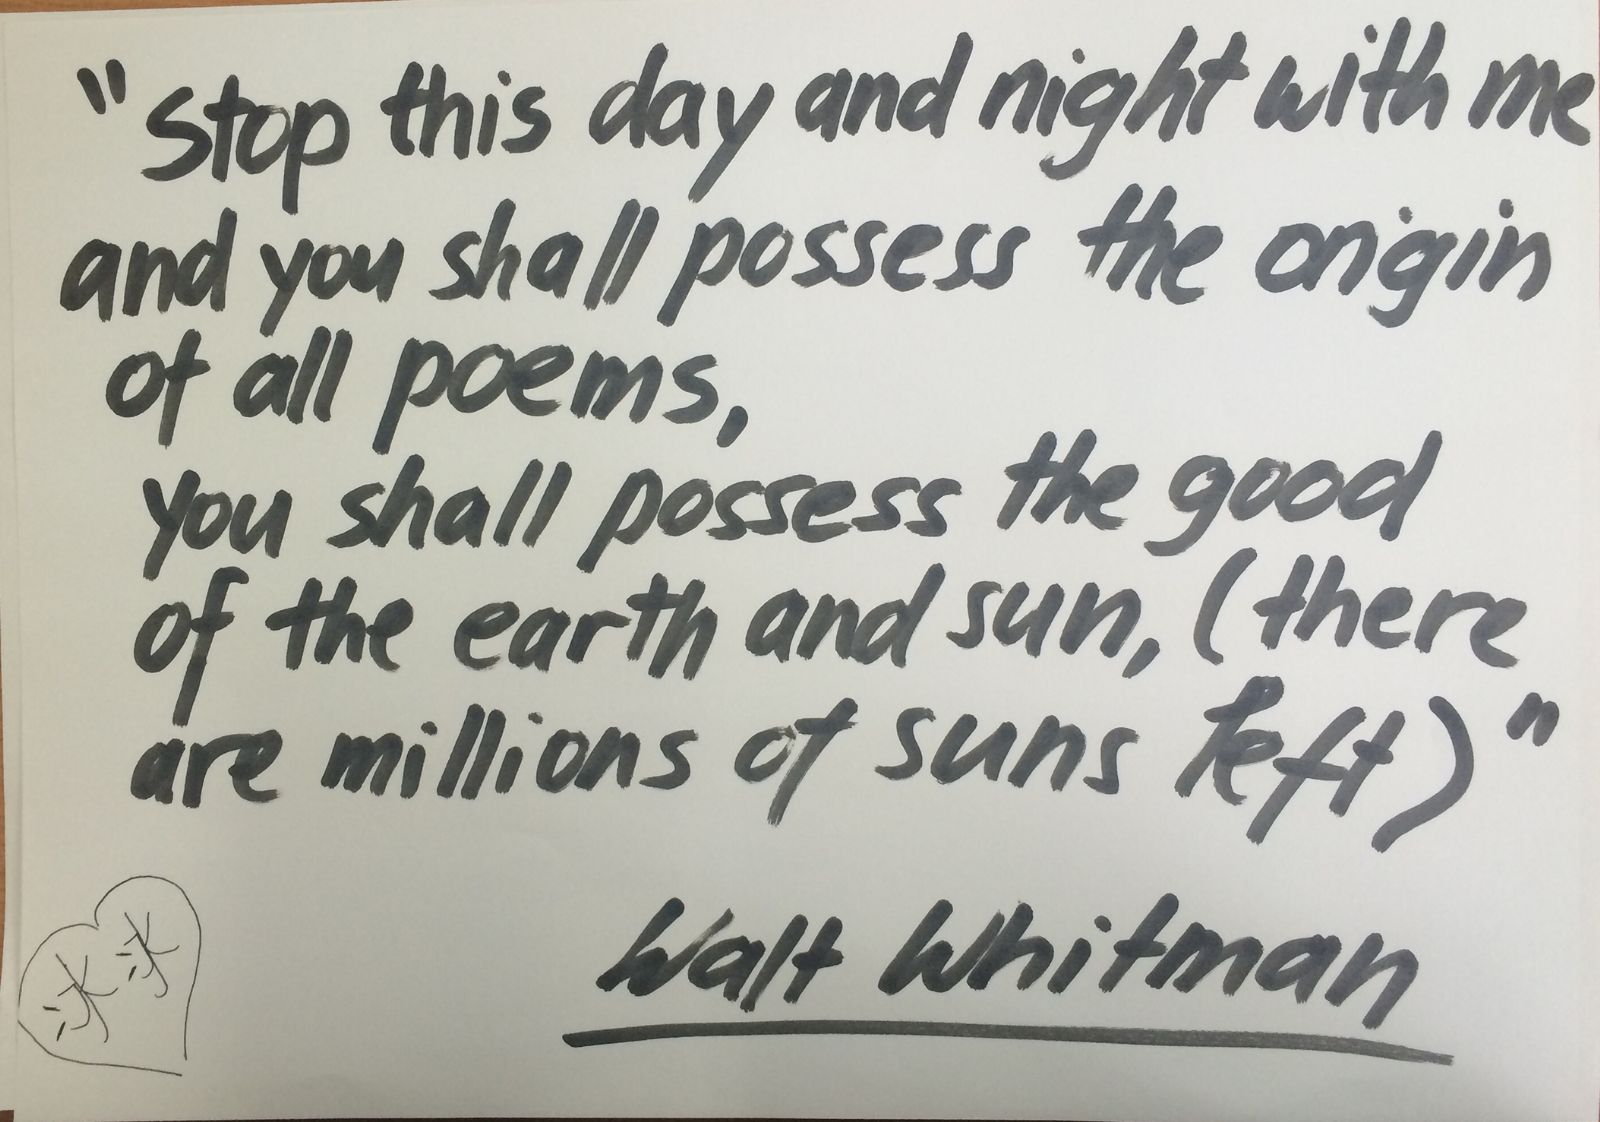 "Stop this day and night with me
and you shall possess the origin
of all poems,
you shall possess the good
of the earth and sun, (there
are millions of suns left)"
Walt Whitman